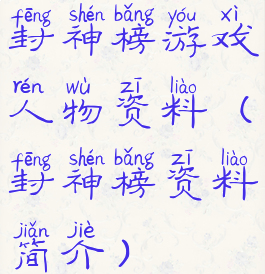 fēng shén bǎng yóu xì
封神榜游戏
rén wù zī liào
人物资料（
fēng shén bǎng zī liào
封神榜资料
jiǎn jiè
简介）